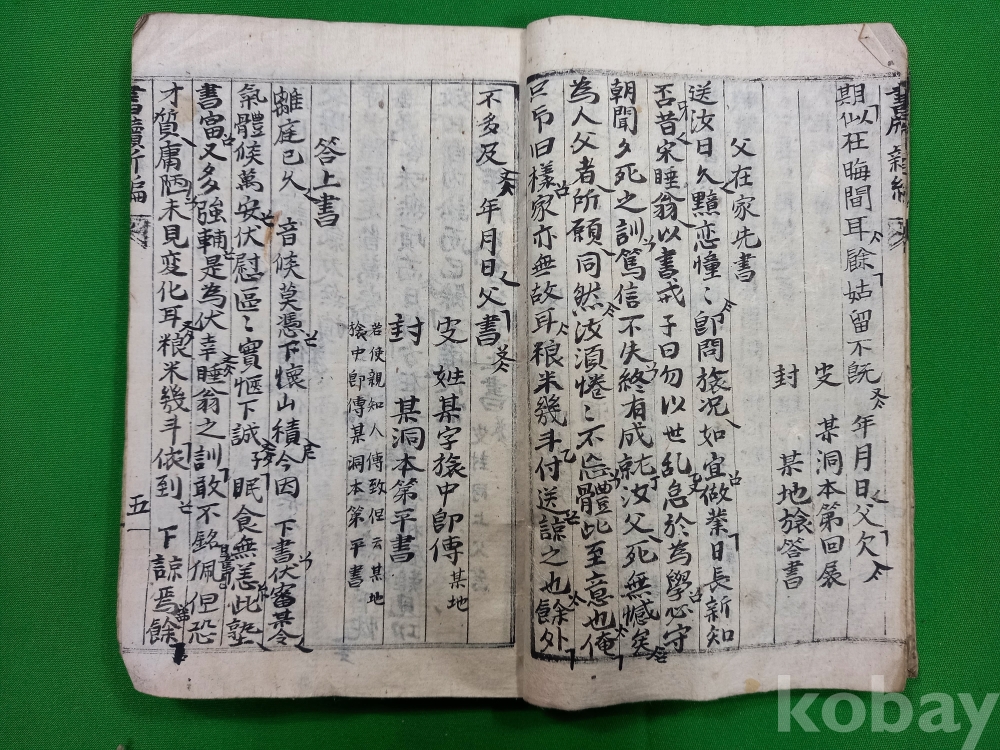 期似在晦間耳餘姑留不旣 年月日父欠
叓 某洞本第回展
封 某地旅答書
父在家先書
送汝日久黯恋憧〻卽問旅况如宜做業日長新知
否昔宋睡翁以書戒子曰勿以世乱怠於為學必守
朝聞夕死之訓篤信不失終有成就汝父死無憾矣
為人父者所願同然汝須惓〻不忘體此至意也俺
旧樣家亦無故耳粮米幾斗付送諒之也餘外
不多及 年月日父書
叓 姓某字旅中卽傳 某地
封 某洞本第平書
若使親知人傳致但云某地
旅中卽傳某洞本第平書
答上書
離庭已久 音候莫憑下懷山積今因 下書伏審某令
氣體候萬安伏慰區〻實愜下誠子 眠食無恙此塾
書富又多強輔是為伏幸睡翁之訓敢不銘佩但恐
才質庸陋未見変化耳粮米幾斗依到 下諒焉餘
五
kobay